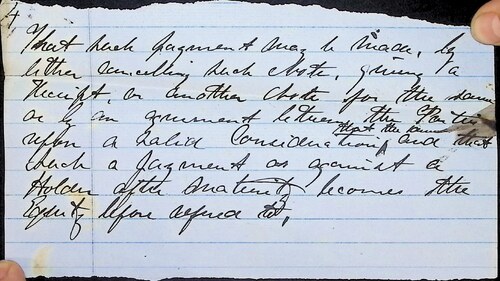 4,
That such payment may be made, by
either cancelling such Note, giving a
Receipt, or another Note for the same
or by an agreement between the Parties
upon a valid Consideration, that the same and that
such a payment as against a
Holder after maturity becomes the
Equity before refered to,